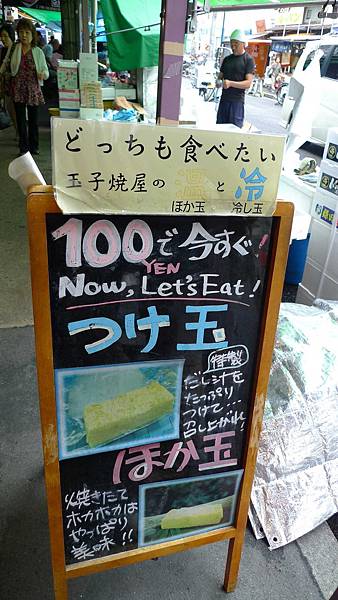 どっちも食べたい
玉子焼屋の温と冷
ほか玉 冷し玉
100で今すぐ!
YEN
Now, Let's Eat!
つけ玉
特製
だし汁を
たっぷり
つけて…
召し上がれ!
ほか玉
火焼きたて
ホカホカは
やっぱり
美味!!